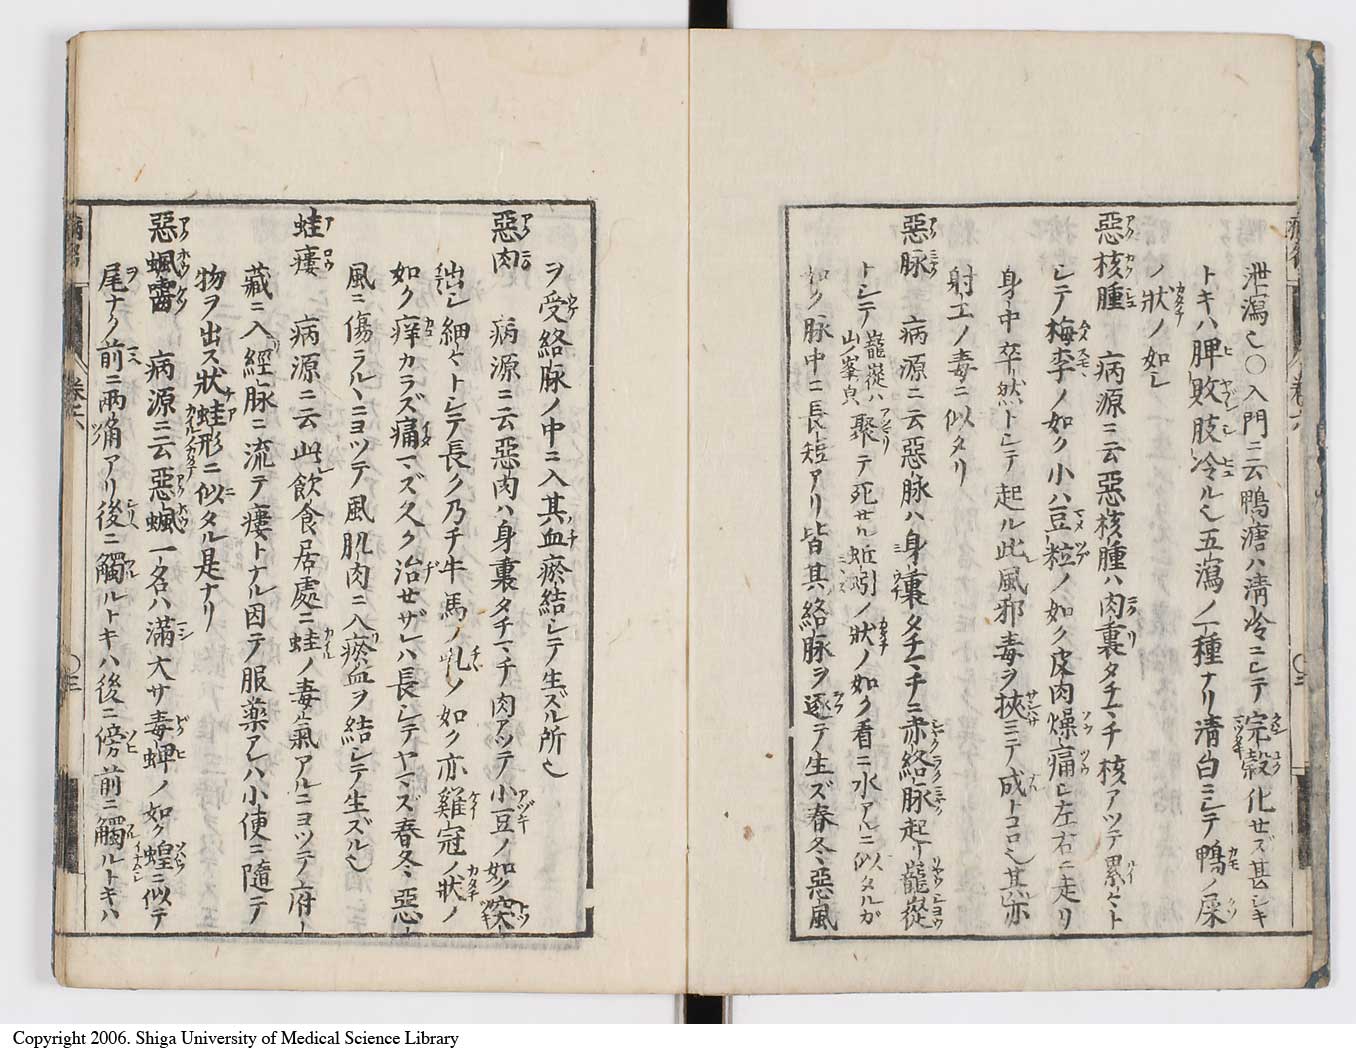 泄瀉也〇入門ニ云鴨溏ハ清冷ニシテ完穀化セズ甚シキ
トキハ脾敗肢冷ル也五瀉ノ一種ナリ清白ニシテ鴨ノ屎
ノ狀ノ如シ
惡核腫 病源ニ云惡核腫ハ肉裏タチマチ核アツテ累々ト
シテ梅李ノ如ク小ハ豆粒ノ如ク皮肉燥痛シ左右ニ走リ
身中卒然トシテ起ル此風邪毒ヲ挾ミテ成トコロ也其亦
射工ノ毒ニ似タリ
惡脉 病源ニ云惡脉ハ身裏タチマチニ赤絡脉起リ巃嵸
トシテ巃嵸ハ山ノ峯貞聚テ死せル蚯蚓ノ狀ノ如ク看ニ水アルニ似タルガ
如ク脉中ニ長短アリ皆其絡脉ヲ逐テ生ズ春冬惡風
ヲ受絡脉ノ中ニ入其血瘀結シテ生ズル所也
惡肉 病源ニ云惡肉ハ身裏タチマチ肉アツテ小豆ノ如ク突
出シ細々トシテ長ク乃チ牛馬ノ乳ノ如ク亦雞冠ノ狀ノ
如ク痒カラズ痛マズ久ク治せザレハ長シテヤマズ春冬惡
風ニ傷ラルヽニヨツテ風肌肉ニ入瘀血ヲ結シテ生ズル也
蛙瘻 病源ニ云此飮食居處ニ蛙ノ毒氣アルニヨツテ府
藏ニ入經脉ニ流テ瘻トナル因テ服藥アレハ小便ニ隨テ
物ヲ出ス狀蛙形ニ似タル是ナリ
惡䖟嚙 病源ニ云惡䖟一名ハ滿大サ毒蜱ノ如ク蝗ニ似テ
尾ナク前ニ兩角アリ後ニ觸ルトキハ後ニ傍前ニ觸ルトキハ
卷六
Copyright 2006. Shiga University of Medical Science Library